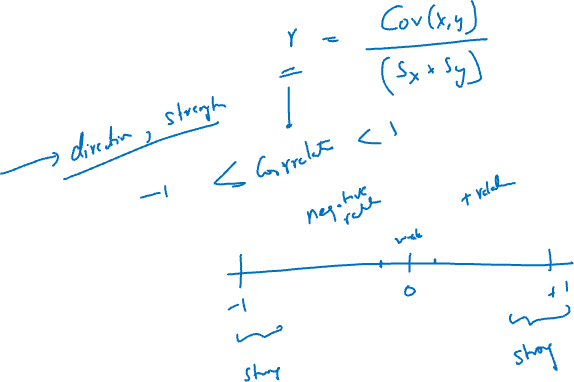 r = Cov(x,y) / (Sx * Sy)
→ direction, strength
-1 ≤ Correlate < 1
negative + relation
weak
-1 0 +1
strong strong